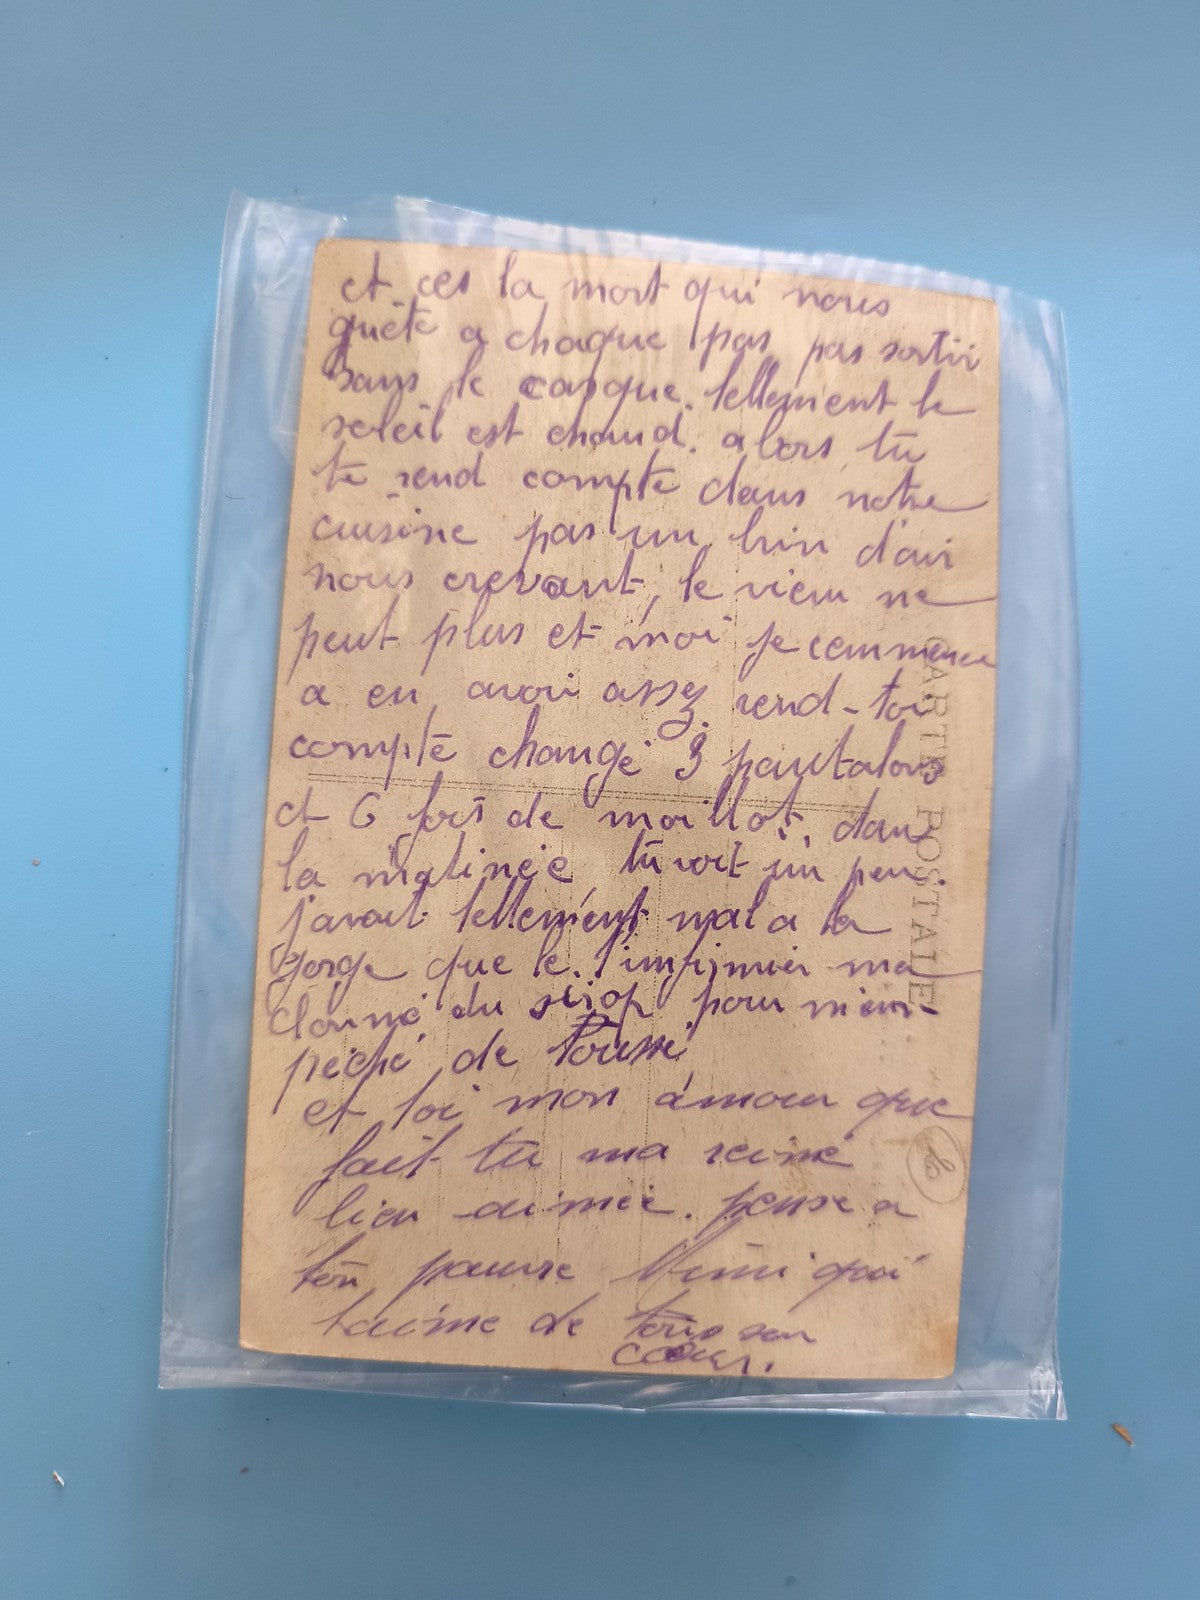 et ces la mort qui nous
guète a chaque pas pas sortir
sans le casque. tellement le
soleil est chaud. alors tu
te rend compte dans notre
cuisine pas un brin d'air
nous crevont, le vieu ne
peut plus et moi je commence
a en avoir assez. rend-toi
compte changé 3 pantalons
et 6 fois de maillot, dans
la matinée tu voit un peu.
j'avait tellement mal a la
gorge que le l'infirmier ma
donné du sirop pour m'em-
pêché de Toussé
et toi mon amour que
fait tu ma reine
bien aimée. pense a
ton pauvre Mimi qui
t'aime de tous son
coeur.
CARTE POSTALE